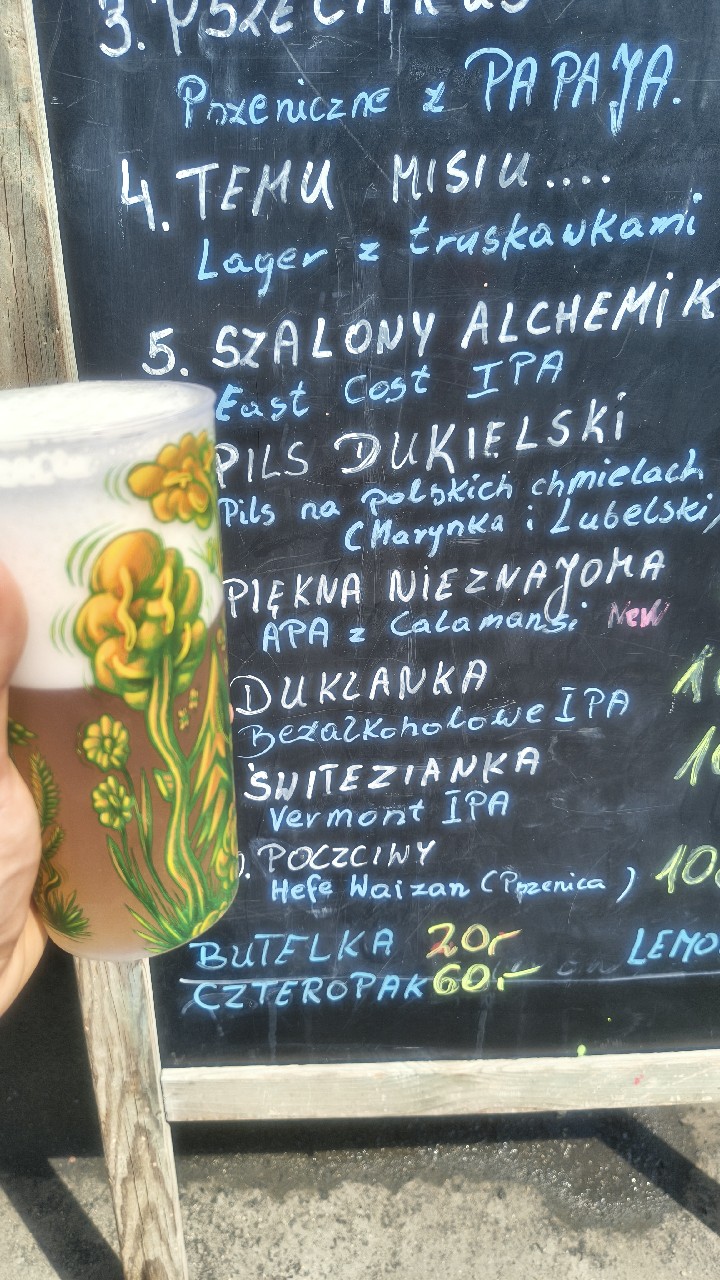 3. PSZECITRUS
Pszeniczne z PAPAJA.
4. TEMU MISIU....
Lager z truskawkami
5. SZALONY ALCHEMiK
East Cost IPA
PILS DUKIELSKi
Pils na polskich chmielach
(Marynka i Lubelski)
PIĘKNA NiEZNAJOMA
APA z Calamansi New
DUKLANKA
Bezalkoholowe IPA
ŚWITEZIANKA
Vermont IPA
POCZCIWY
Hefe Waizan (Pszenica) 10
BUTELKA 20,- LEMO
CZTEROPAK 60,-